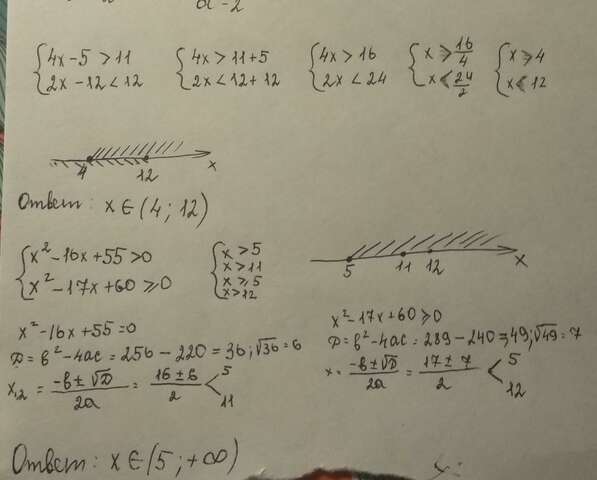 {4x-5>11 {4x>11+5 {4x>16 {x>16/4 {x>4
{2x-12<12 {2x<12+12 {2x<24 {x<24/2 {x<12
4 12 x
Ответ: x∈(4; 12)
{x²-16x+55>0 {x>5
{x²-17x+60⩾0 x>11
x⩾5
x>12
5 11 12 x
x²-16x+55=0
D=b²-4ac=256-220=36; √36=6
x₁,₂ = (-b±√D)/2a = (16±6)/2 < 5
11
x²-17x+60⩾0
D=b²-4ac=289-240=49; √49=7
x= (-b±√D)/2a = (17±7)/2 < 5
12
Ответ: x∈(5; +∞)